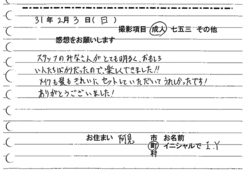 31年 2月 3日(日)
撮影項目 成人 七五三 その他
感想をお願いします
スタッフのみなさんがとても明るく、おもしろ
い人たちばかりだったので、楽しくできました!!
メイクも髪もきれいに、セットしていただいてうれしかったです!
ありがとうございました!
お住まい 阿見 市町村 お名前 イニシャルで I.Y